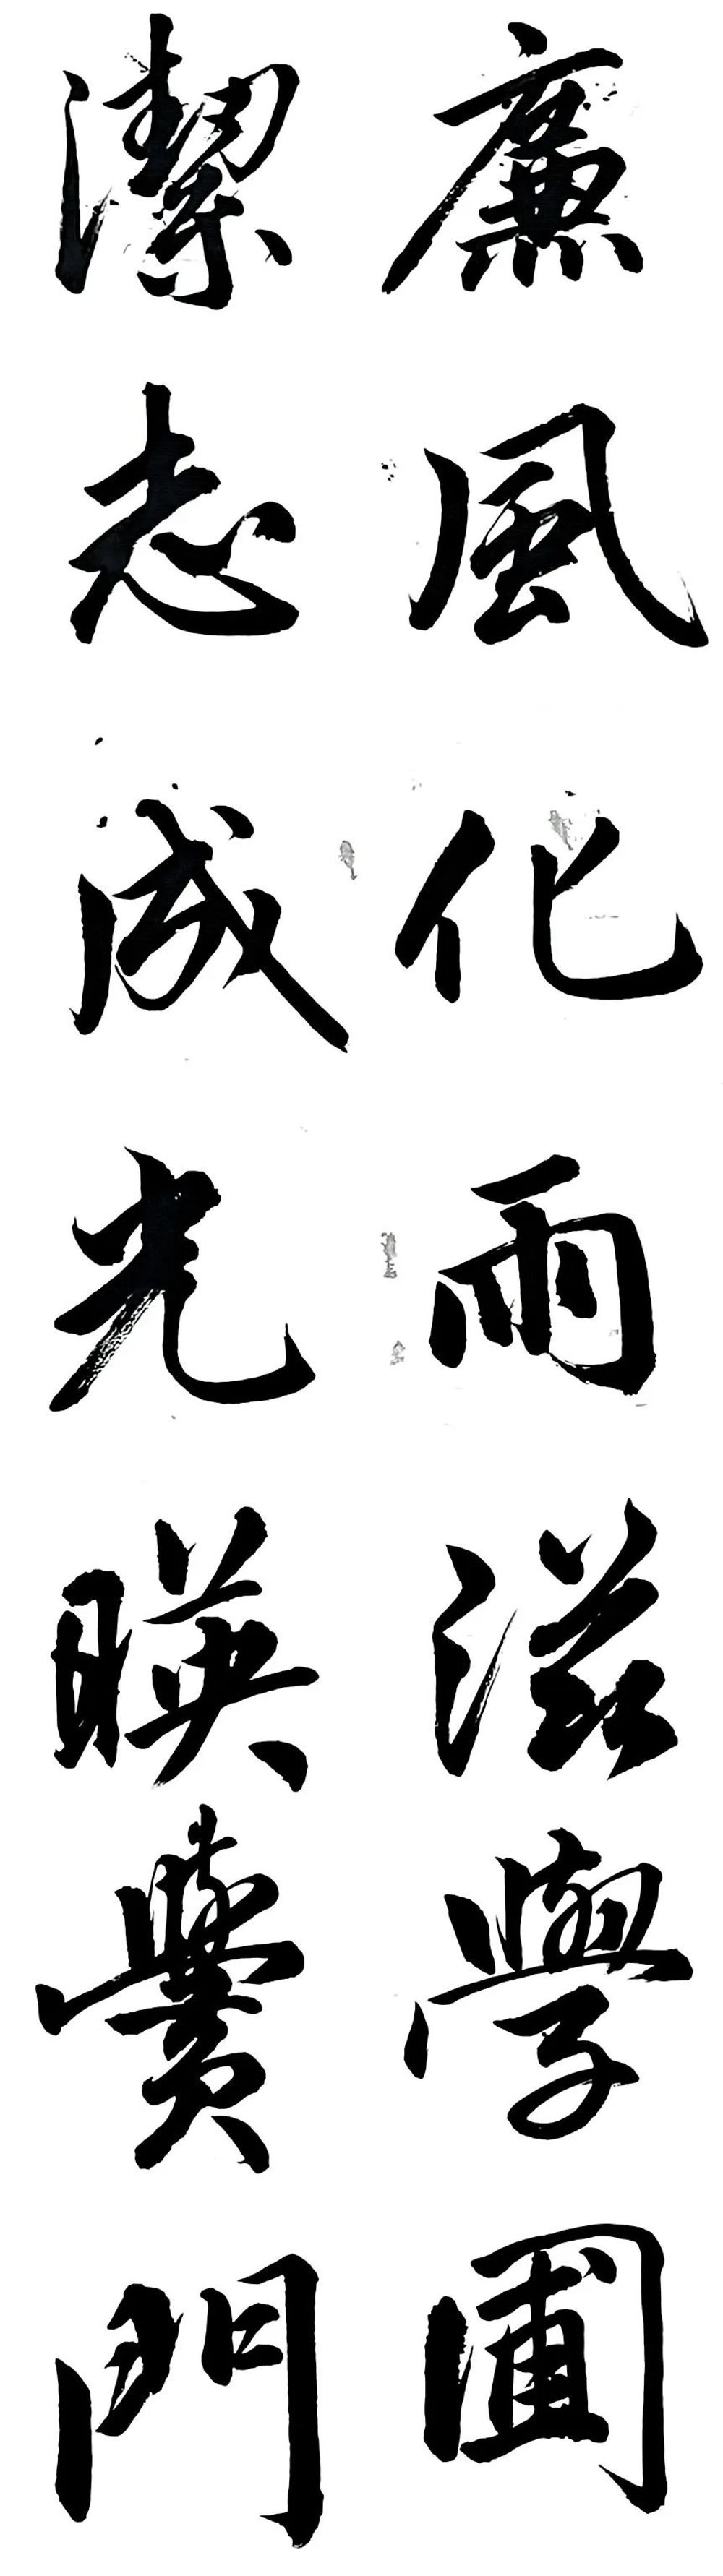 廉風化雨滋學圃
潔志成光暎黌門